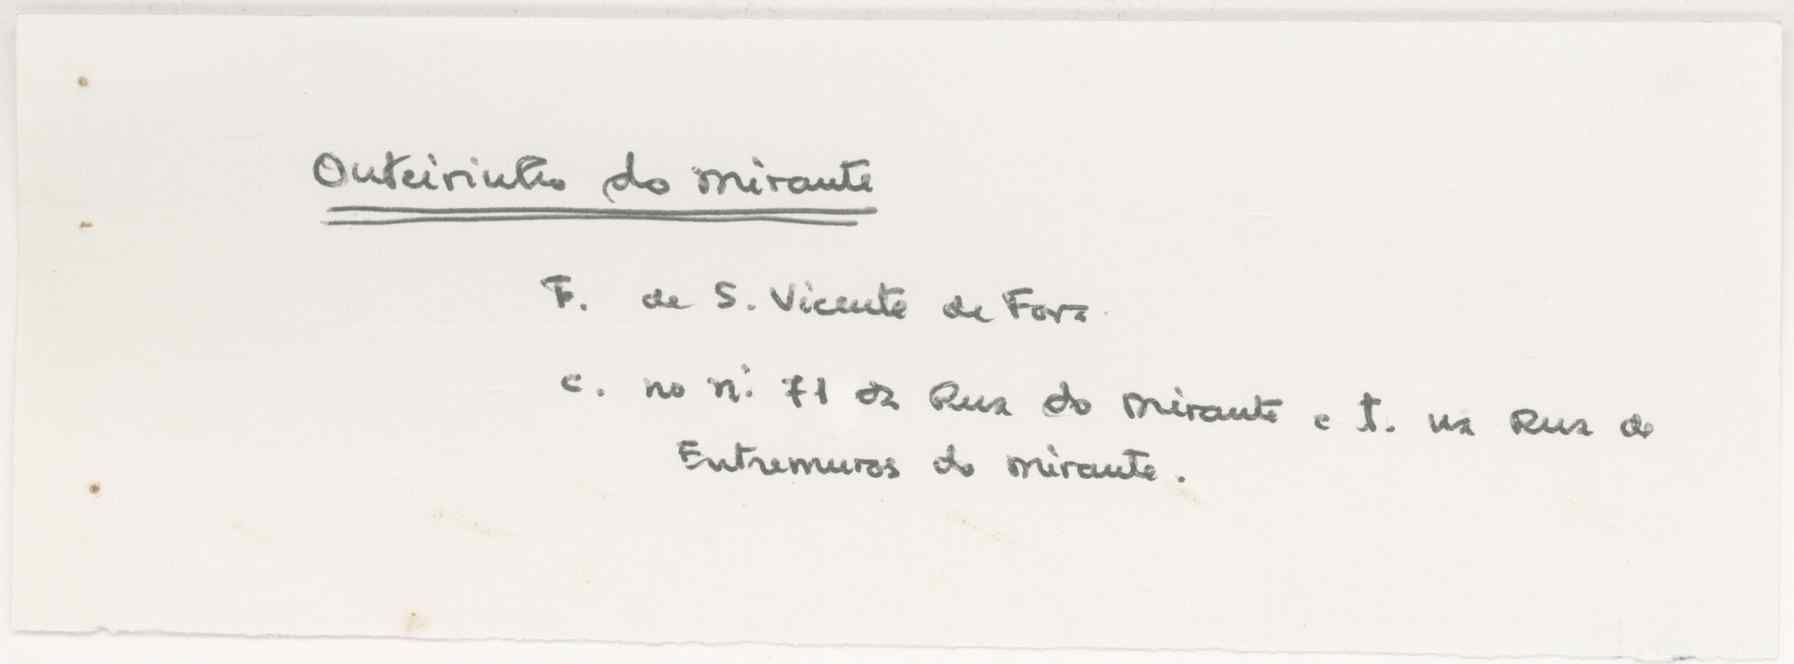 Outeirinho do Mirante
F. de S. Vicente de Fora
C. no nº. 71 da Rua do Mirante e T. na Rua de
Entremuros do Mirante.